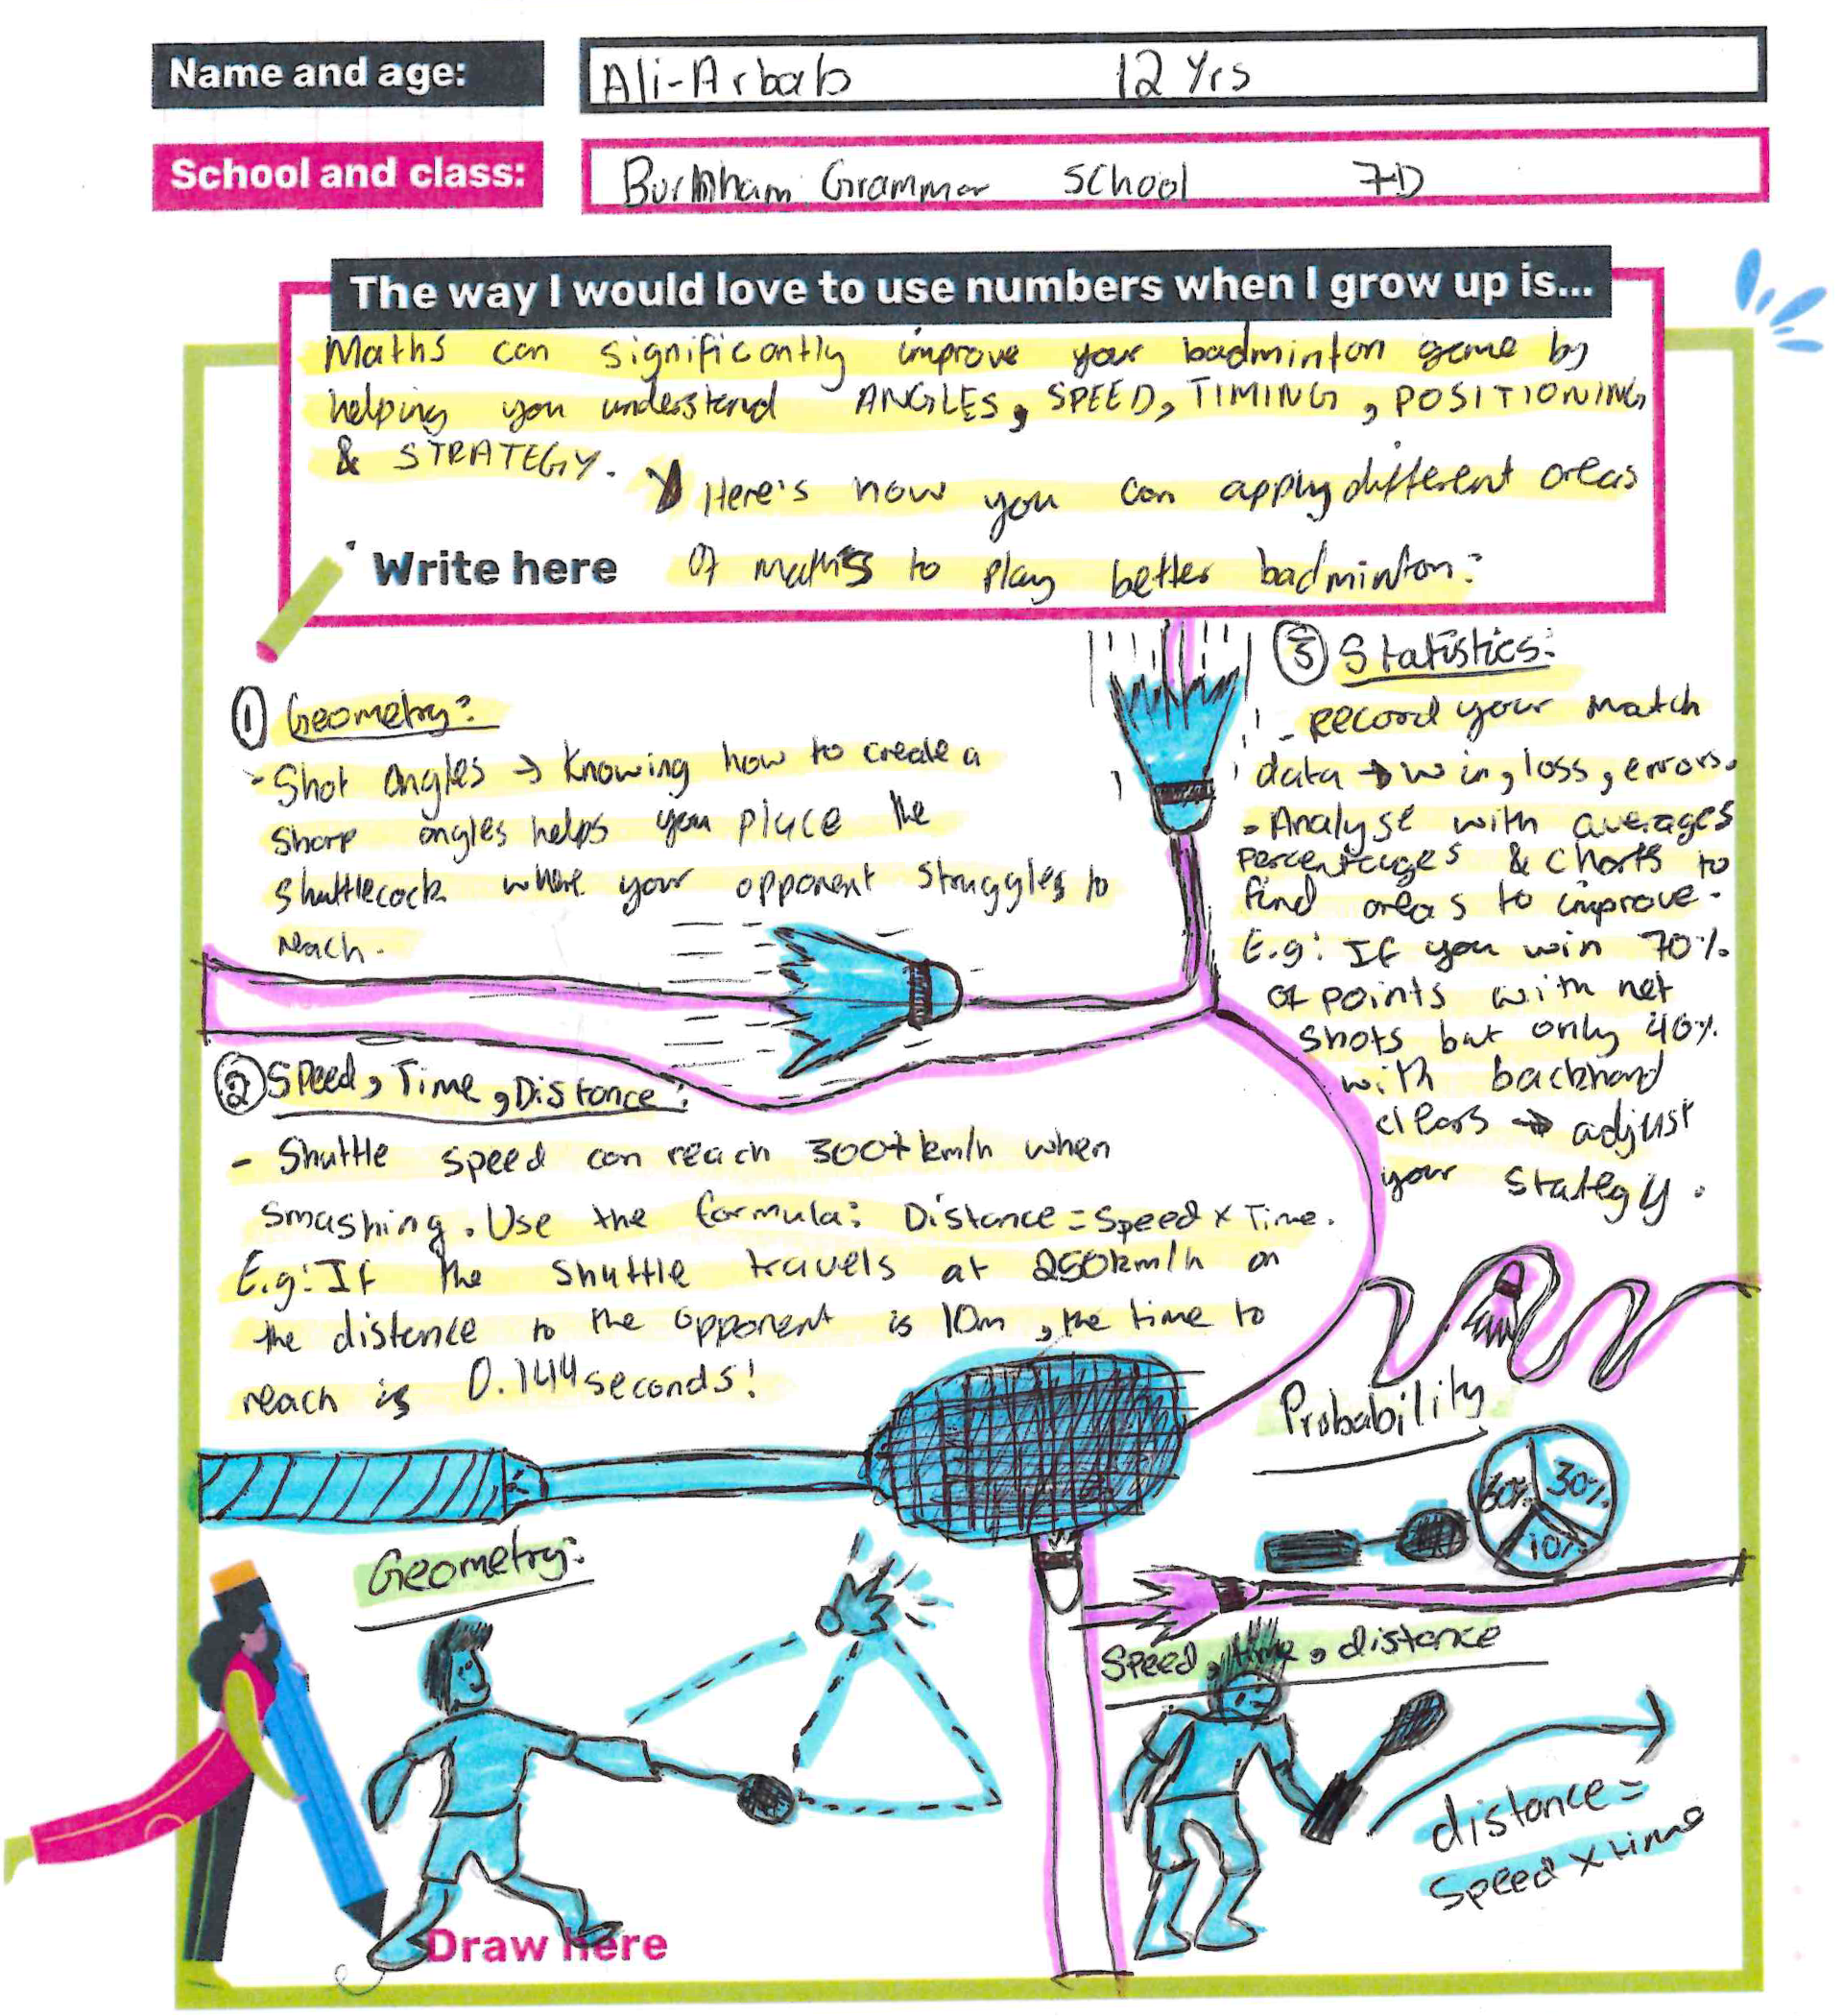 Name and age:
Ali-Arbab 12 Yrs
School and class:
Burnham Grammar School 7D
The way I would love to use numbers when I grow up is...
Maths can significantly improve your badminton game by
helping you understand ANGLES, SPEED, TIMING, POSITIONING
& STRATEGY.
Here's how you can apply different areas
Write here
Of maths to play better badminton:
① Geometry:
- Shot angles → Knowing how to create a
sharp angles helps you place the
shuttlecock where your opponent struggles to
reach.
② Speed, Time, Distance:
- Shuttle speed can reach 300+ km/h when
smashing. Use the formula: Distance = Speed x Time.
E.g: If the shuttle travels at 250km/h an
the distance to the opponent is 10m, the time to
reach is 0.144 seconds!
③ Statistics:
- Record your match
data → win, loss, errors.
- Analyse with averages
percentages & charts to
find areas to improve.
E.g: If you win 70%
of points with net
shots but only 40%
with backhand
clears → adjust
your stategy.
Probability
60% 30%
10%
Geometry:
Speed, time, distance
distance =
Speed x time
Draw here